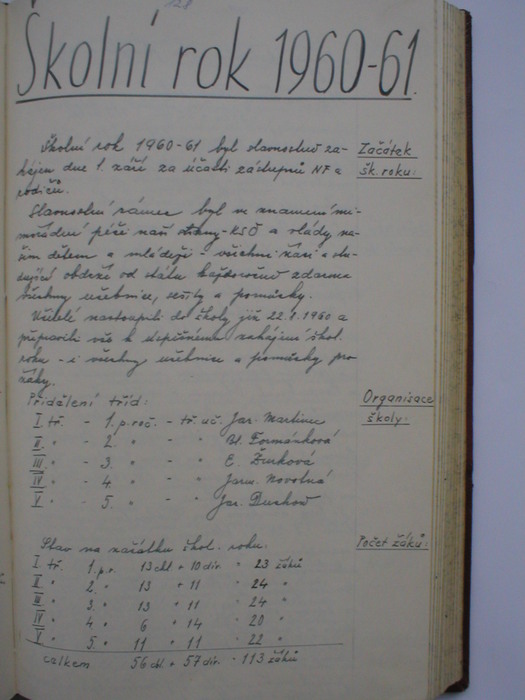 128
Školní rok 1960-61.
Školní rok 1960-61 byl slavnostně za-
hájen dne 1. září za účasti zástupců NF a
rodičů.
Začátek
šk. roku:
Slavnostní rámec byl ve znamení mi-
mořádné péče naší strany - KSČ a vlády na-
šim dětem a mládeži - všichni žáci a stu-
dující obdrží od státu každoročně zdarma
všechny učebnice, sešity a pomůcky.
Učitelé nastoupili do školy již 22.8.1960 a
připravili vše k úspěšnému zahájení škol.
roku - i všechny učebnice a pomůcky pro
žáky.
Přidělení tříd:
Organisace
školy:
I. tř. - 1. p. roč. - tř. uč. Jar. Martinec
II. " - 2. " - " Bl. Formánková
III " - 3. " - " E. Žurková
IV " - 4. " - " Jarm. Novotná
V " - 5. " - " Jar.
Stav na začátku škol. roku:
Počet žáků:
I. tř. 1. p.r. 13 chl + 10 dív. " 23 žáků
II " 2. " 13 + 11 " 24 "
III " 3. " 13 + 11 " 24 "
IV " 4. " 6 + 14 " 20 "
V " 5. " 11 + 11 " 22 "
celkem 56 chl. + 57 dív. - 113 žáků